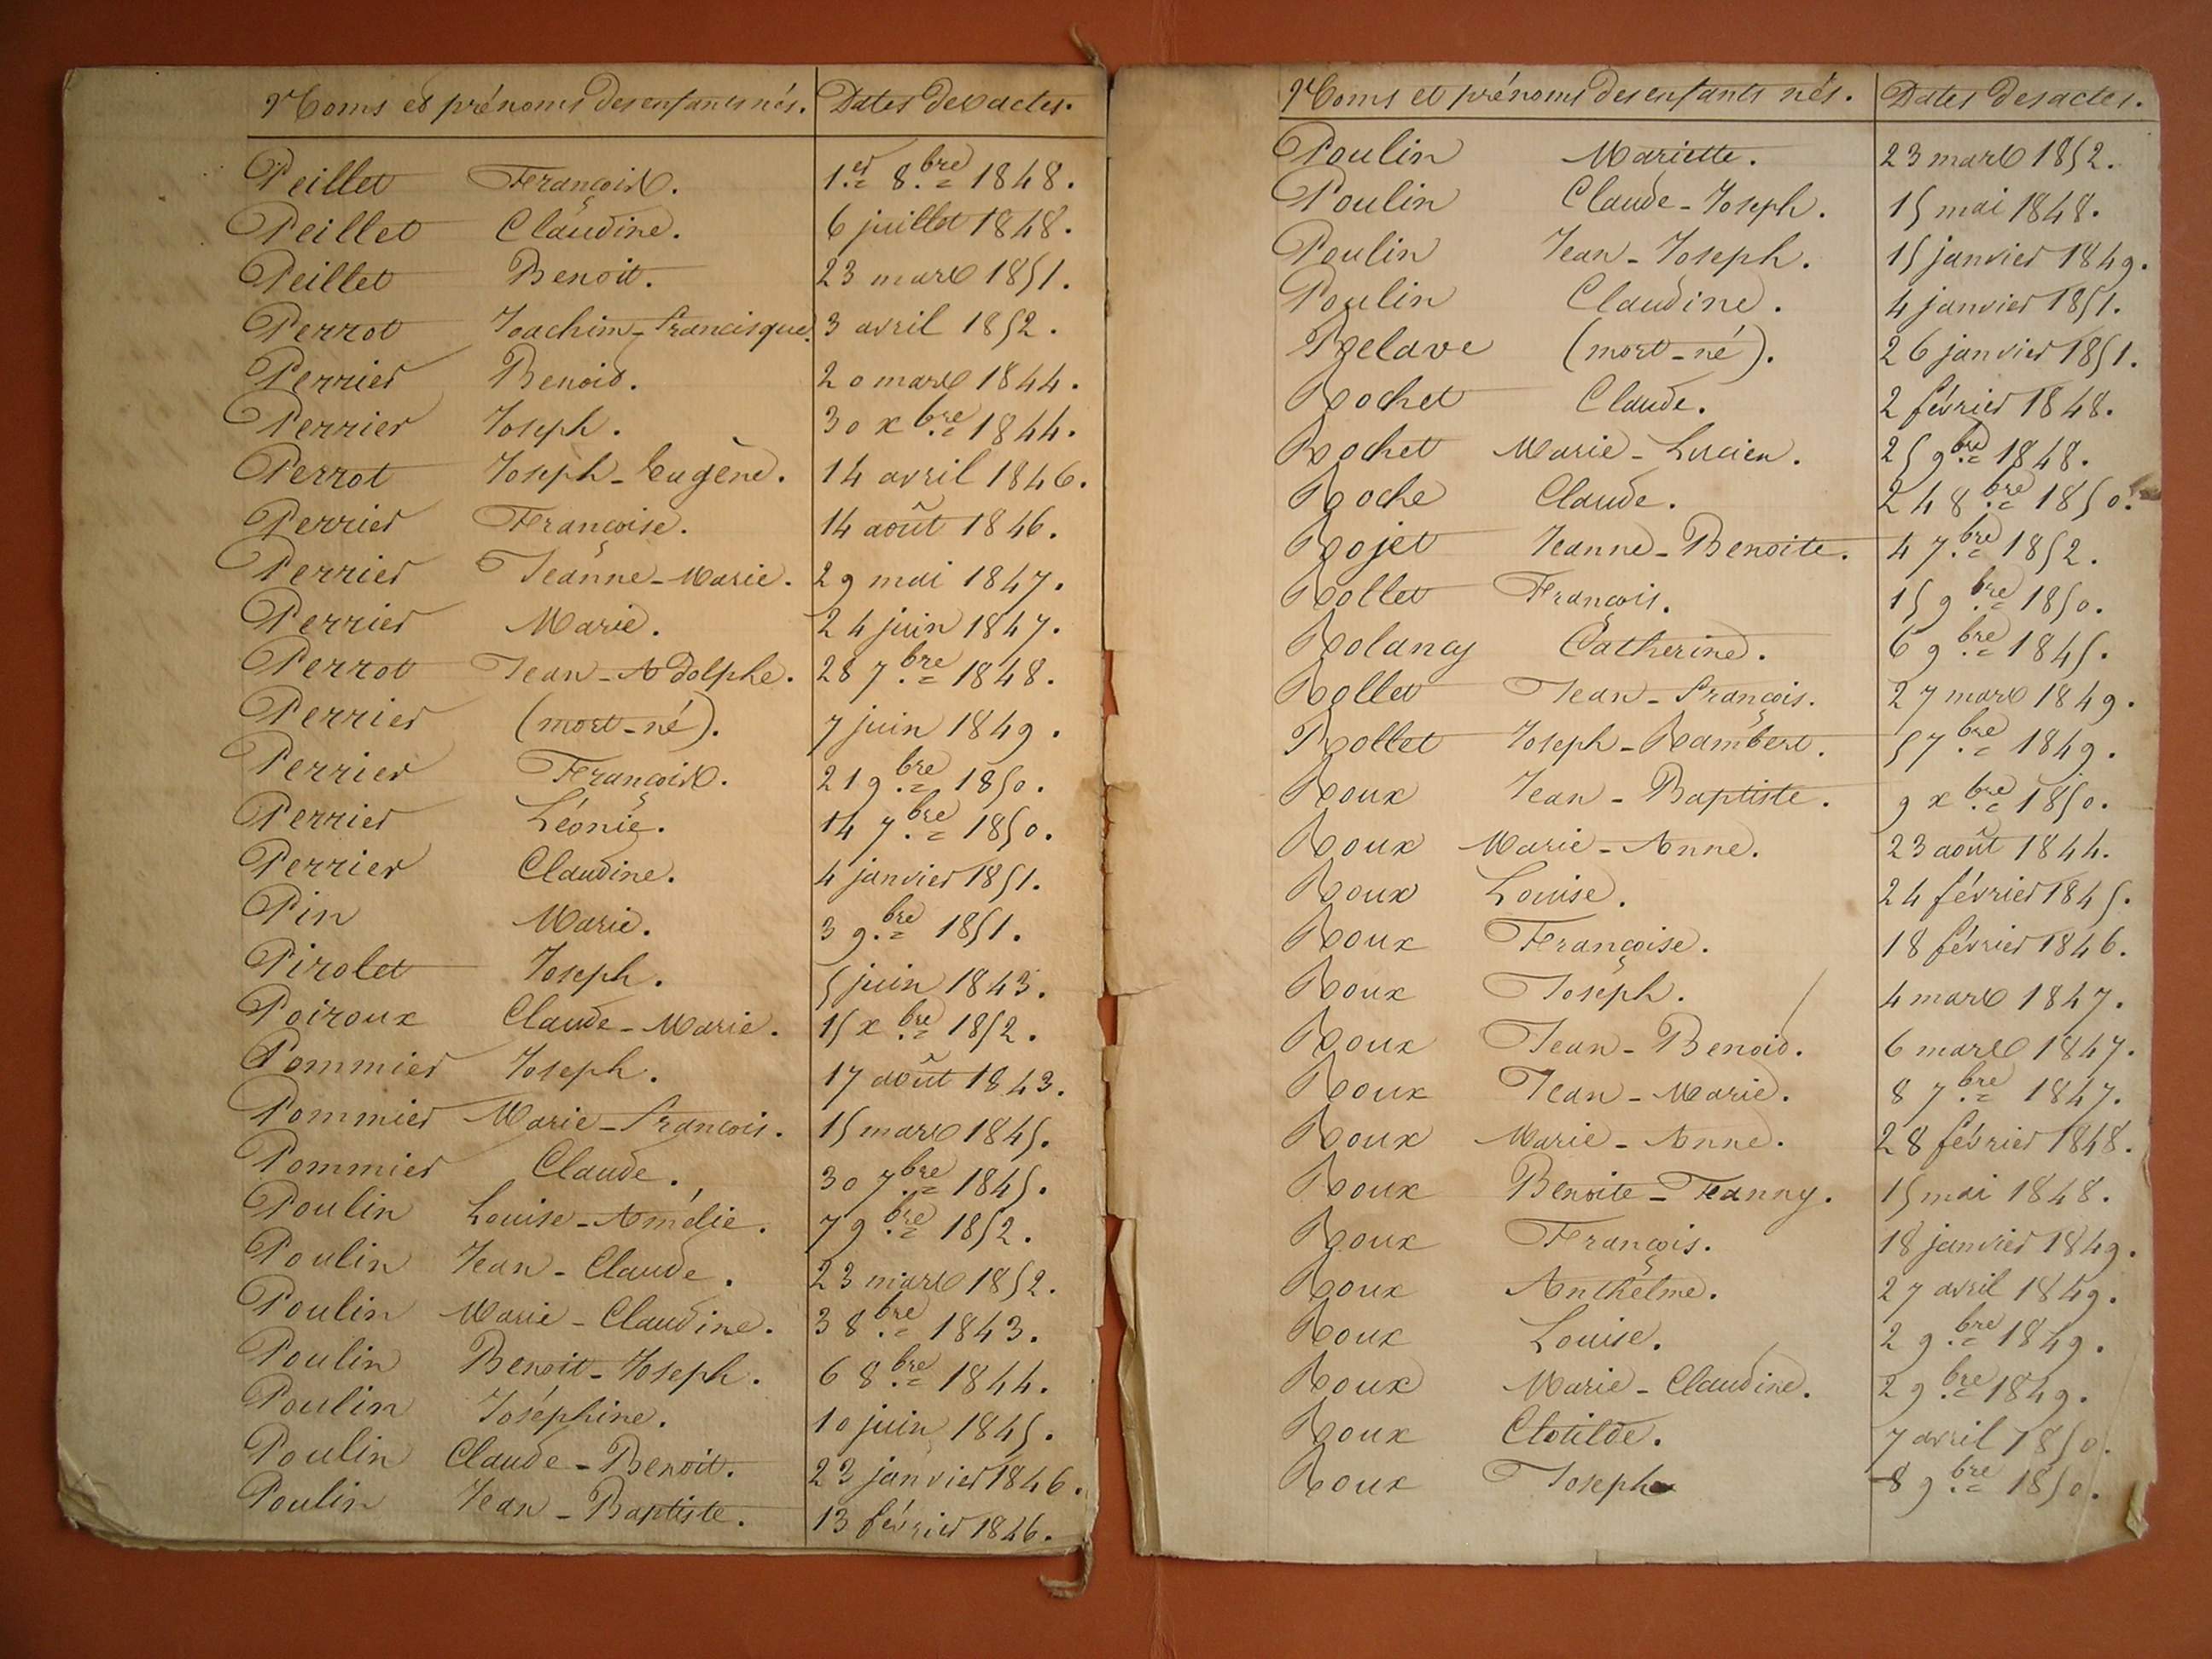 Noms et prénoms des enfants nés. Dates des actes.
Peillet François. 1.er 8.bre 1848.
Peillet Claudine. 6 juillet 1848.
Peillet Benoit. 23 mars 1851.
Perrot Joachim-francisque. 3 avril 1852.
Perrier Benoit. 20 mars 1844.
Perrier Joseph. 30 xbre 1844.
Perrot Joseph-Eugène. 14 avril 1846.
Perrier Françoise. 14 août 1846.
Perrier Jeanne-Marie. 29 mai 1847.
Perrier Marie. 24 juin 1847.
Perrot Jean-Adolphe. 28 7.bre 1848.
Perrier (mort-né). 7 juin 1849.
Perrier François. 21 9.bre 1850.
Perrier Léonie. 14 7.bre 1850.
Perrier Claudine. 4 janvier 1851.
Pin Marie. 3 9.bre 1851.
Pirolet Joseph. 5 juin 1843.
Poiroux Claude-Marie. 15 xbre 1852.
Pommier Joseph. 17 août 1843.
Pommier Marie-françois. 15 mars 1845.
Pommier Claude. 30 7bre 1845.
Poulin Louise-Amélie. 7 9bre 1852.
Poulin Jean-Claude. 23 mars 1852.
Poulin Marie-Claudine. 3 8bre 1843.
Poulin Benoit-Joseph. 6 8bre 1844.
Poulin Joséphine. 10 juin 1845.
Poulin Claude-Benoit. 23 janvier 1846.
Poulin Jean-Baptiste. 13 février 1846.
Noms et prénoms des enfants nés. Dates des actes.
Poulin Mariette. 23 mars 1852.
Poulin Claude-Joseph. 15 mai 1848.
Poulin Jean-Joseph. 15 janvier 1849.
Poulin Claudine. 4 janvier 1851.
Relave (mort-né). 26 janvier 1851.
Rochet Claude. 2 février 1848.
Rochet Marie-Lucien. 25 9bre 1848.
Roche Claude. 24 8bre 1850.
Rojet Jeanne-Benoite. 4 7.bre 1852.
Rollet François. 15 9bre 1850.
Rolancy Catherine. 6 9bre 1845.
Rollet Jean-françois. 27 mars 1849.
Rollet Joseph-Rambert. 5 7bre 1849.
Roux Jean-Baptiste. 9 xbre 1850.
Roux Marie-Anne. 23 août 1844.
Roux Louise. 24 février 1845.
Roux Françoise. 18 février 1846.
Roux Joseph. 4 mars 1847.
Roux Jean-Benoit. 6 mars 1847.
Roux Jean-Marie. 8 7bre 1847.
Roux Marie-Anne. 28 février 1848.
Roux Benoite-Fanny. 15 mai 1848.
Roux François. 18 janvier 1849.
Roux Anthelme. 27 avril 1849.
Roux Louise. 2 9bre 1849.
Roux Marie-Claudine. 2 9bre 1849.
Roux Clotilde. 7 avril 1850.
Roux Joseph 8 9bre 1850.